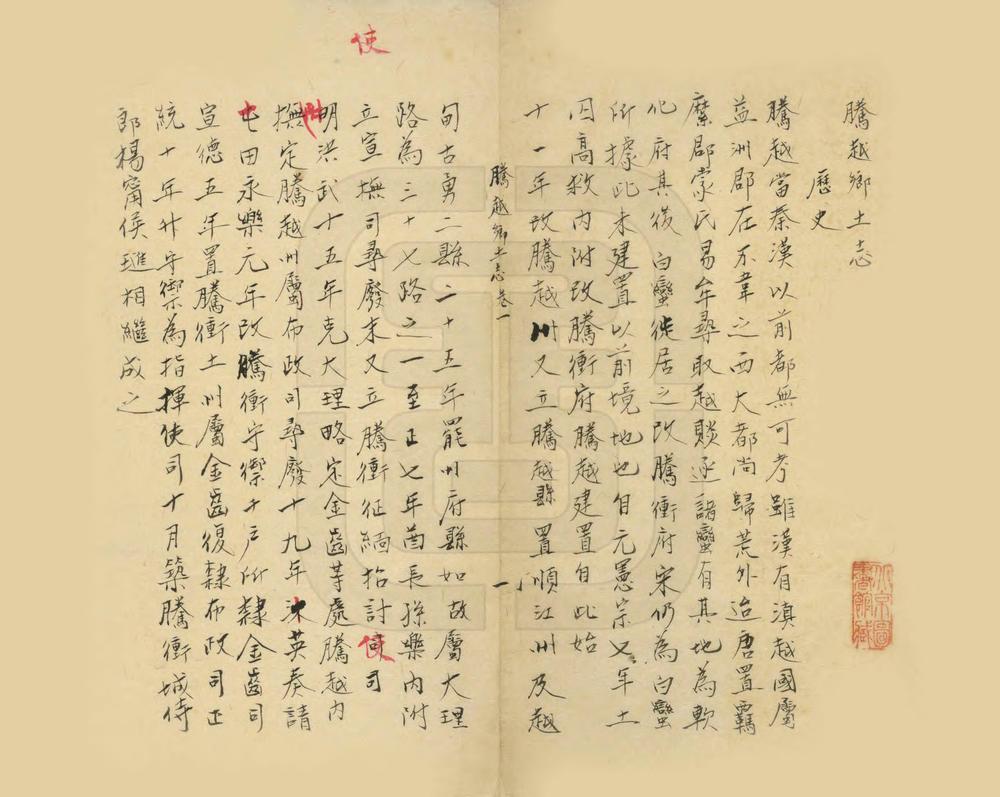 騰越鄉土志
歷史
騰越當秦漢以前都無可考雖漢有滇越國屬
益洲郡在不韋之西大都尚歸荒外迨唐置羈
縻郡蒙氏易牟尋取越賧逐諸蠻有其地為軟
化府其後白蠻徙居之改騰衝府宋仍為白蠻
所據此未建置以前境地也自元憲宗七年土
囚高救內附改騰衝府騰越建置自此始
十一年改騰越州又立騰越縣置順江州及越
騰越鄉土志卷一
一
甸古勇二縣二十五年罷州府縣如故屬大理
路為三十七路之一至正七年酋長孫樂內附
立宣撫司尋廢末又立騰衝征緬招討使司
使
明洪武十五年克大理略定金齒等處騰越內
撫定騰越州屬布政司尋廢十九年沐英奏請
屯田永樂元年改騰衝守禦千戶所隸金齒司
宣德五年置騰衝土州屬金齒復隸布政司正
統十年升守禦為指揮使司十月築騰衝城侍
郎楊甯侯璡相繼成之